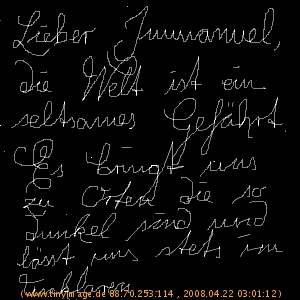 Lieber Immanuel,
die Welt ist ein
seltsames Gefährt.
Es bringt uns
zu Orten die so
dunkel sind und
lässt uns stets im
Unklaren
(www.tinyimage.de 88.70.253.114 , 2008.04.22 03:01:12)